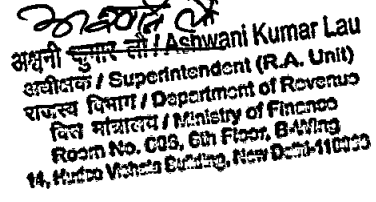 अश्वनी कुमार लौ / Ashwani Kumar Lau
अधीक्षक / Superintendent (R.A. Unit)
राजस्व विभाग / Department of Revenue
वित्त मंत्रालय / Ministry of Finance
Room No. 605, 6th Floor, B-Wing
14, Hudco Vishala Building, New Delhi-110066